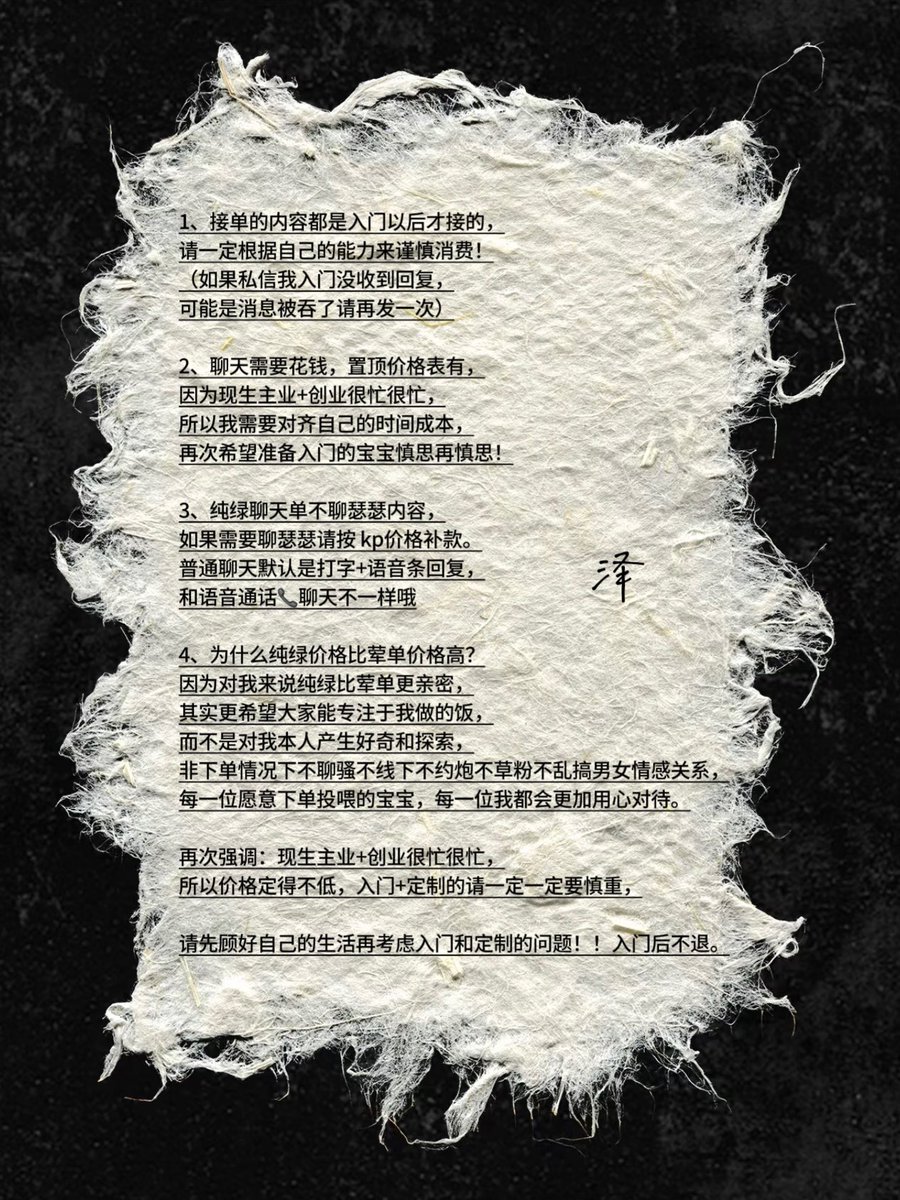 1、接单的内容都是入门以后才接的，
请一定根据自己的能力来谨慎消费！
（如果私信我入门没收到回复，
可能是消息被吞了请再发一次）
2、聊天需要花钱，置顶价格表有，
因为现生主业+创业很忙很忙，
所以我需要对齐自己的时间成本，
再次希望准备入门的宝宝慎思再慎思！
3、纯绿聊天单不聊瑟瑟内容，
如果需要聊瑟瑟请按 kp价格补款。
普通聊天默认是打字+语音条回复，
和语音通话📞聊天不一样哦
泽
4、为什么纯绿价格比荤单价格高？
因为对我来说纯绿比荤单更亲密，
其实更希望大家能专注于我做的饭，
而不是对我本人产生好奇和探索，
非下单情况下不聊骚不线下不约炮不草粉不乱搞男女情感关系，
每一位愿意下单投喂的宝宝，每一位我都会更加用心对待。
再次强调：现生主业+创业很忙很忙，
所以价格定得不低，入门+定制的请一定一定要慎重，
请先顾好自己的生活再考虑入门和定制的问题！！入门后不退。